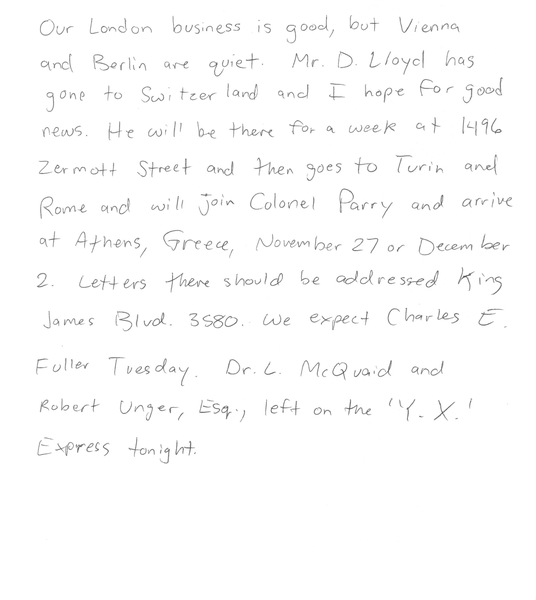 Our London business is good, but Vienna
and Berlin are quiet. Mr. D. Lloyd has
gone to Switzerland and I hope for good
news. He will be there for a week at 1496
Zermott Street and then goes to Turin and
Rome and will join Colonel Parry and arrive
at Athens, Greece, November 27 or December
2. Letters there should be addressed King
James Blvd. 3580. We expect Charles E.
Fuller Tuesday. Dr. L. McQuaid and
Robert Unger, Esq., left on the 'Y. X.'
Express tonight.